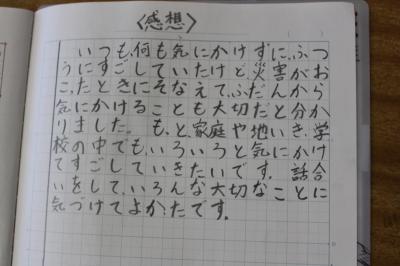 〈感想〉
いつも、何も気にかけずに、ふつ
うにすごしていたけど、災害がお
こったときにそなえて、ふだんから
気にかけることも大切だと分か
りました。もっと、家庭や地いき、学
校の中でも、いろいろと気にかけ
てすごしていきたいです。話合
いをして、いろんな大切なことに
気づけてよかったです。